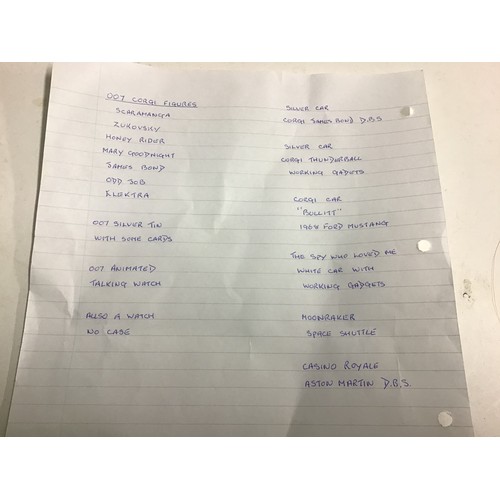 007 CORGI FIGURES
SCARAMANGA
ZUKOVSKY
HONEY RIDER
MARY GOODNIGHT
JAMES BOND
ODD JOB
ELEKTRA
007 SILVER TIN
WITH SOME CARDS
007 ANIMATED
TALKING WATCH
ALLSO A WATCH
NO CASE
SILVER CAR
CORGI JAMES BOND D.B.S
SILVER CAR
CORGI THUNDERBALL
WORKING GADGETS
CORGI CAR
"BULLITT"
1968 FORD MUSTANG
THE SPY WHO LOVED ME
WHITE CAR WITH
WORKING GADGETS
MOONRAKER
SPACE SHUTTLE
CASINO ROYALE
ASTON MARTIN D.B.S.